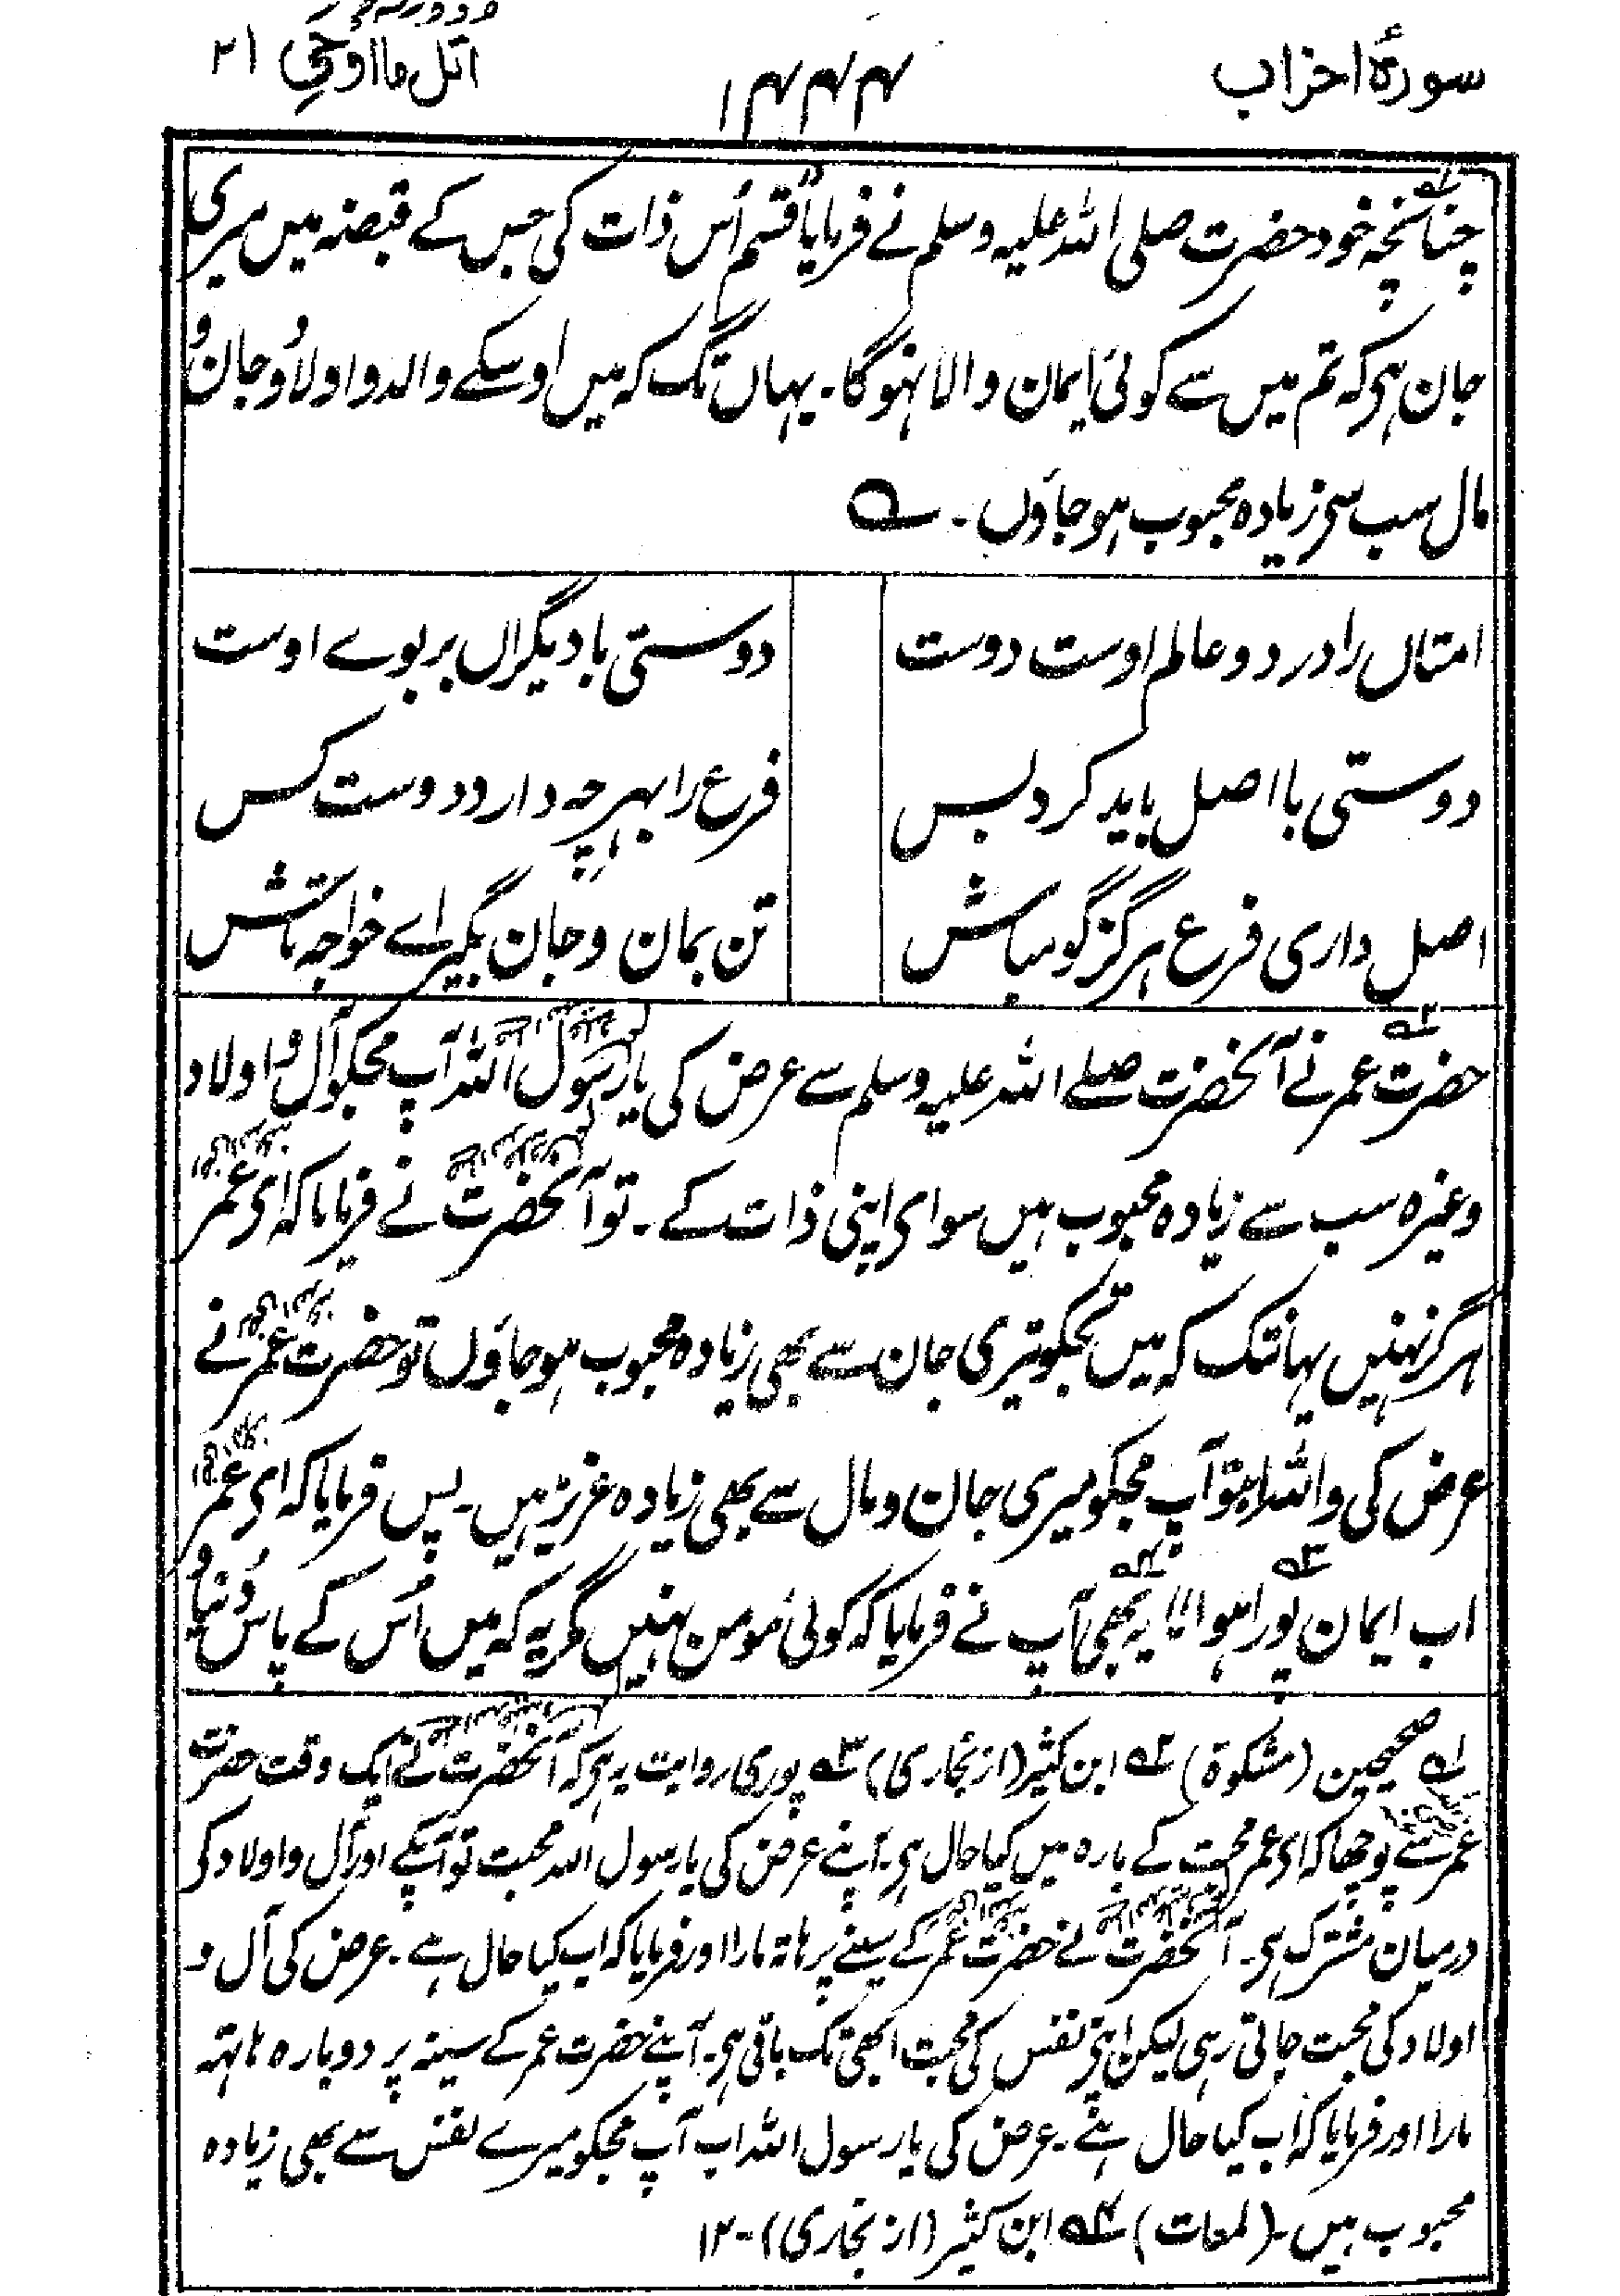 سورۂ احزاب
۱۴۴۴
اتل ما اوحی ۲۱
چنانچہ خود حضرت صلی اللہ علیہ وسلم نے فرمایا قسم اُس ذات کی جس کے قبضہ میں میری
جان ہی کہ تم میں سے کوئی ایمان والا نہوگا۔ یہاں تک کہ میں اوسکے والد و اولاد و جان و
مال سب سی زیادہ محبوب ہو جاؤں۔ ؎
امتاں را در دو عالم اوست دوست
دوستی با دیگراں بر بوے اوست
دوستی با اصل باید کرد بس
فرع را بہر چہ دارد دوست کس
اصل داری فرع ہرگز گو مباش
تن بمان و جان بگیر اے خواجہ تاش
حضرت عمر نے آنحضرت صلے اللہ علیہ وسلم سے عرض کی یا رسول اللہ آپ مجکو آل و اولاد
وغیرہ سب سے زیادہ محبوب ہیں سوای اپنی ذات کے۔ تو آنحضرت نے فرمایا کہ ای عمر
ہرگز نہیں یہانتک کہ میں تجکو تیری جان سے بھی زیادہ محبوب ہو جاؤں تو حضرت عمر نے
عرض کی واللہ ابتو آپ مجکو میری جان و مال سے بھی زیادہ عزیز ہیں۔ پس فرمایا کہ ای عمر
اب ایمان پورا ہوا ؎۳ یہ بھی آپ نے فرمایا کہ کوئی مومن نہیں مگر یہ کہ میں اُس کے پاس دُنیا و
؎۱ صحیحین (مشکوۃ) ؎۲ ابن کثیر (از بخاری) ؎۳ پوری روایت یہ ہی کہ آنحضرت نے ایک وقت حضرت
عمر سے پوچھا کہ ای عمر محبت کے بارہ میں کیا حال ہی۔ آپنے عرض کی یا رسول اللہ محبت تو آپکے اور آل و اولاد کی
درمیان مشترک ہی۔ آنحضرت نے حضرت عمر کے سینے پر ہاتہ مارا اور فرمایا کہ اب کیا حال ہے۔ عرض کی آل و
اولاد کی محبت جاتی رہی لیکن اپنی نفس کی محبت ابھی تک باقی ہی۔ آپنے حضرت عمر کے سینہ پر دوبارہ ہاتہہ
مارا اور فرمایا کہ اب کیا حال ہے۔ عرض کی یا رسول اللہ اب آپ مجکو میرے نفس سے بھی زیادہ
محبوب ہیں۔ (لمعات) ؎۴ ابن کثیر (از بخاری)۔ ۱۲